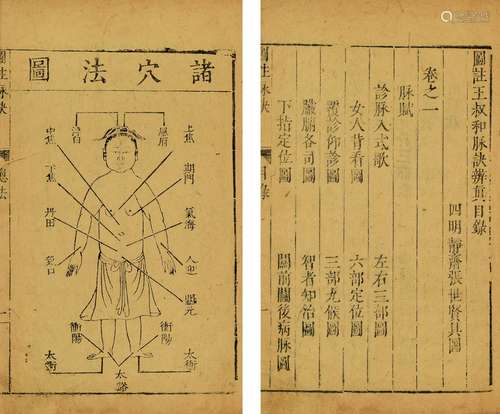 圖註王叔和脉訣辨真目錄
四明 靜齋張世賢具圖
卷之一
脉賦
診脉入式歌 左右三部圖
女人背看圖 六部定位圖
覆診仰診圖 三部九候圖
臟腑各司圖 智者知治圖
下指定位圖 關前關後病脉圖
圖註脉訣 目錄
諸穴法圖
上焦
期門
氣海
人迎
關元
衝陽
太衝
中焦
下焦
丹田
氣口
衝陽
太衝
太谿
圖註脉訣